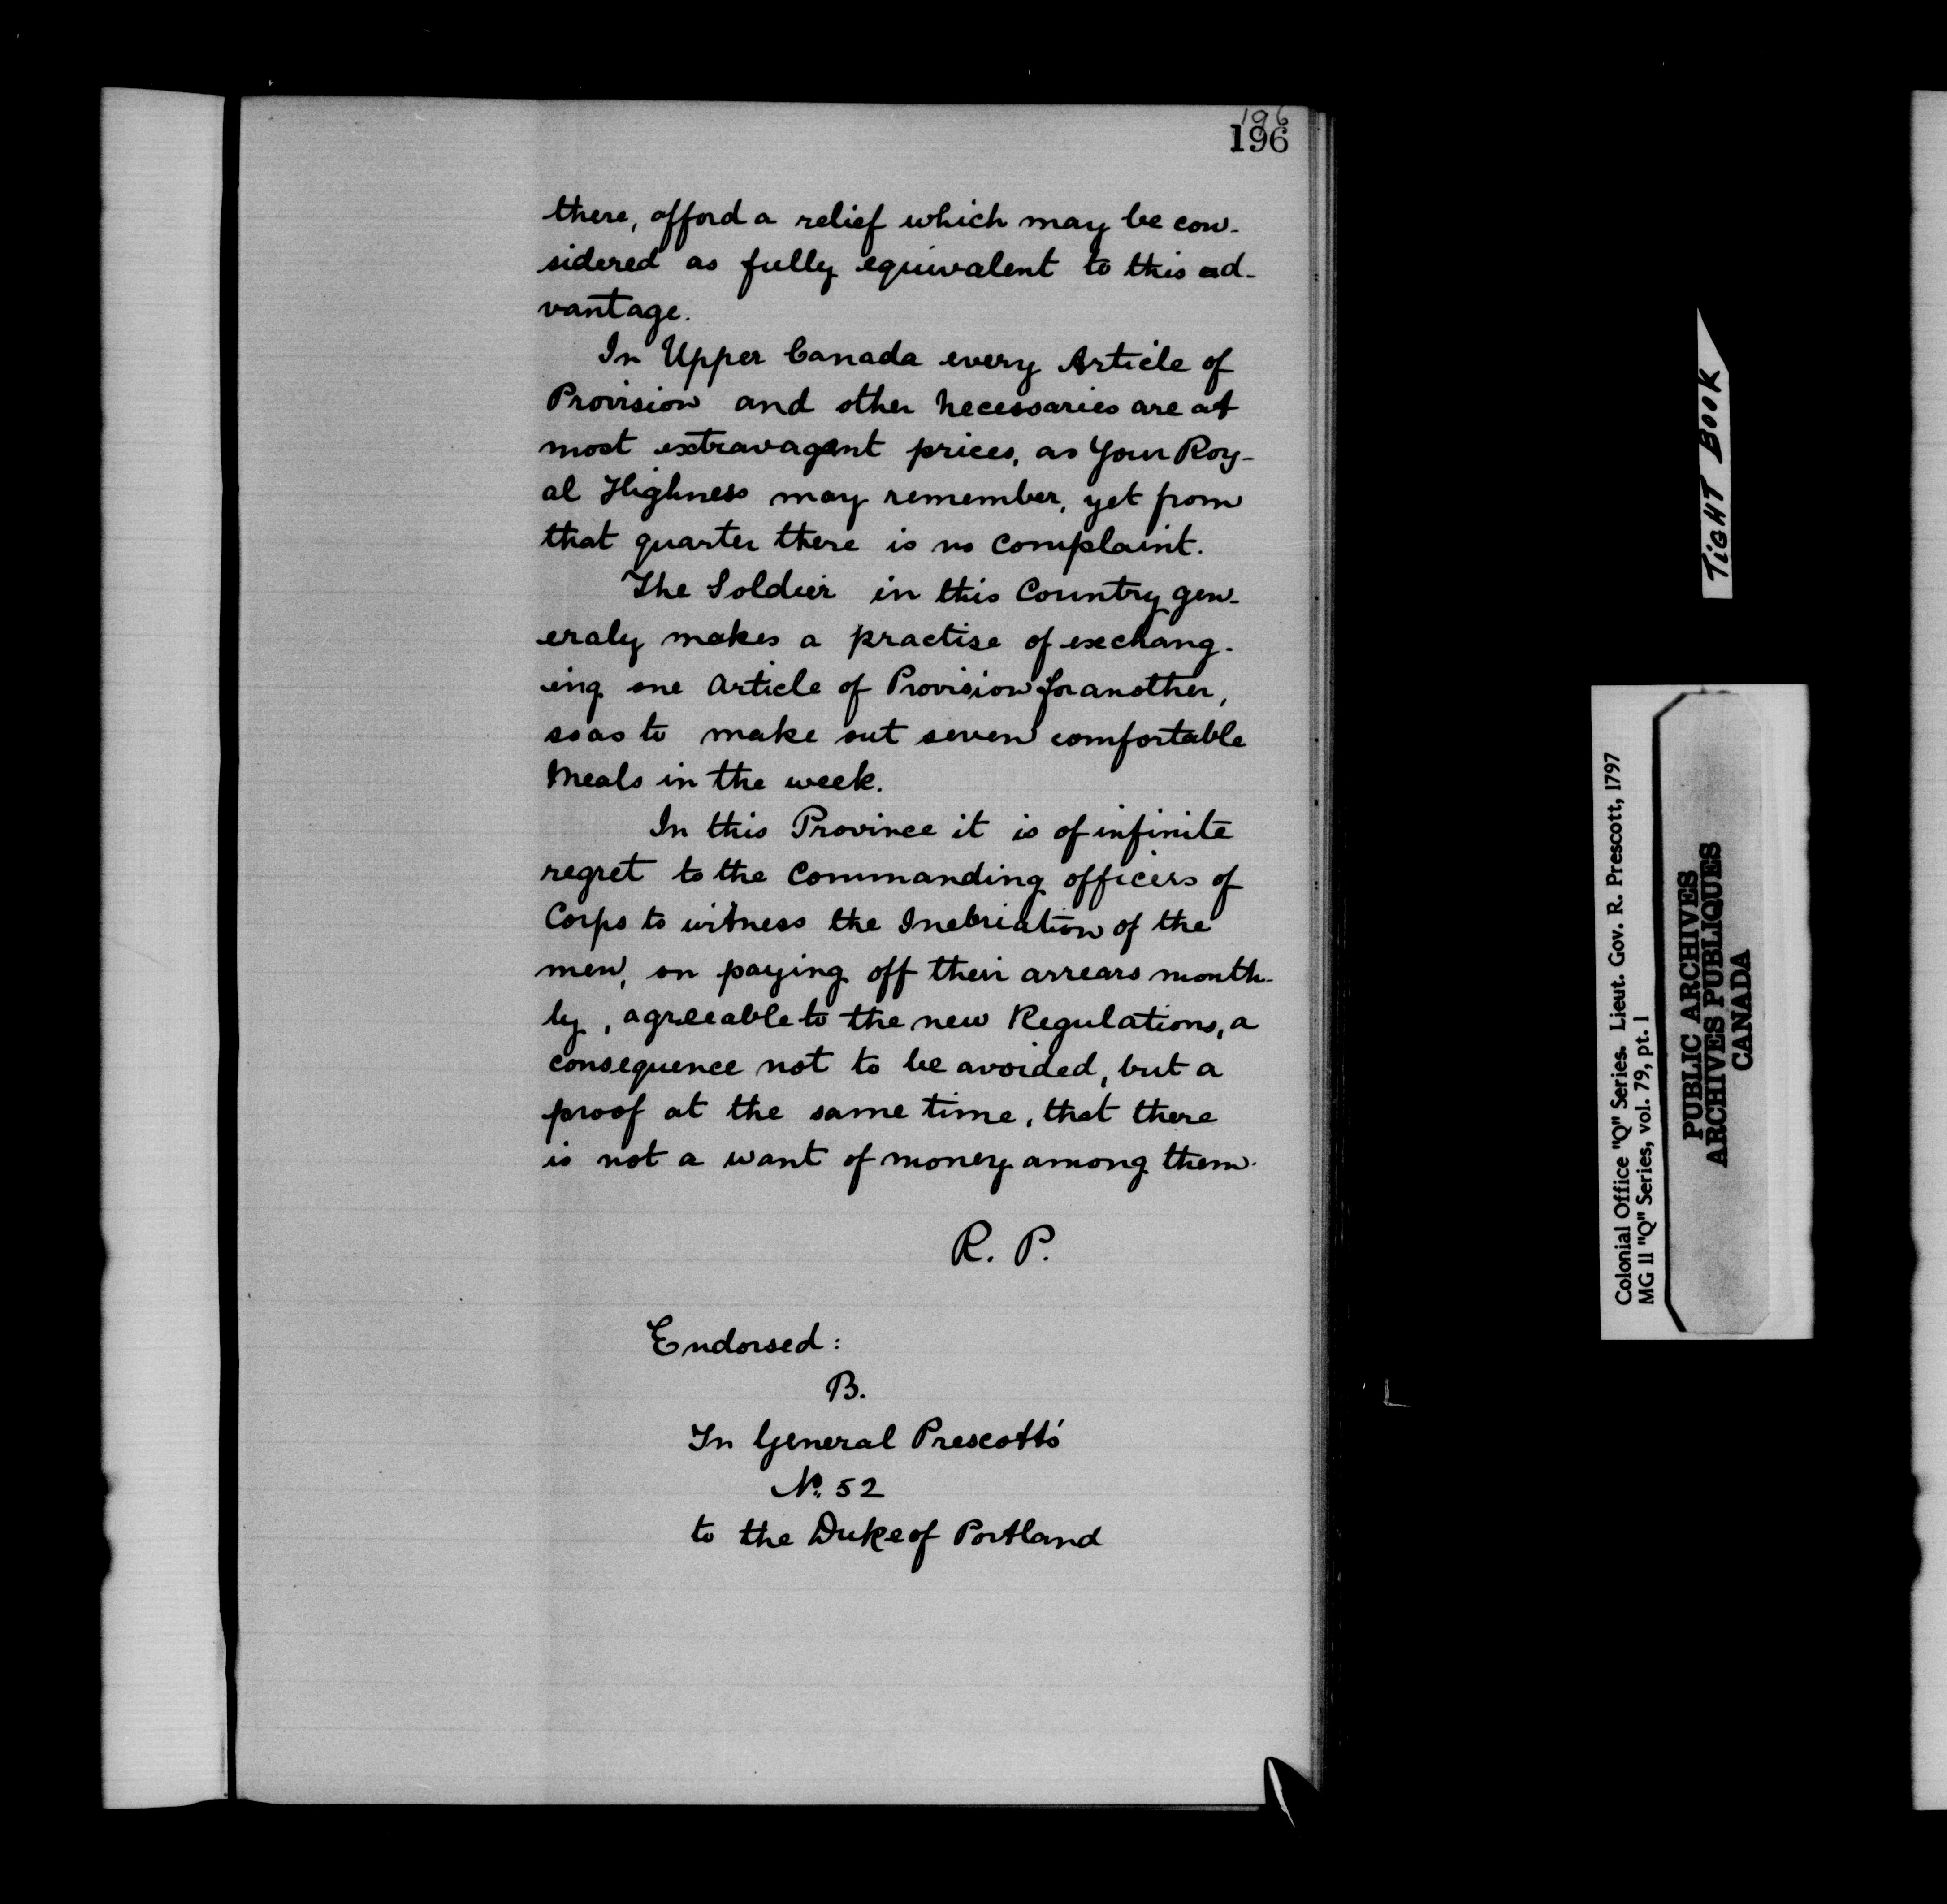 196
196
there, afford a relief which may be con-
sidered as fully equivalent to this ad-
vantage.
In Upper Canada every Article of
Provision and other necessaries are at
most extravagant prices, as Your Roy-
al Highness may remember, yet from
that quarter there is no complaint.
The Soldier in this Country gen-
eraly makes a practise of exchang-
ing one Article of Provision for another,
so as to make out seven comfortable
Meals in the week.
In this Province it is of infinite
regret to the Commanding officers of
Corps to witness the Inebriation of the
men, on paying off their arrears month-
ly, agreeable to the new Regulations, a
consequence not to be avoided, but a
proof at the same time, that there
is not a want of money among them.
R. P.
Endorsed:
B.
In General Prescott's
No. 52
to the Duke of Portland
TIGHT BOOK
Colonial Office "Q" Series. Lieut. Gov. R. Prescott, 1797
MG 11 "Q" Series, vol. 79, pt. 1
PUBLIC ARCHIVES
ARCHIVES PUBLIQUES
CANADA